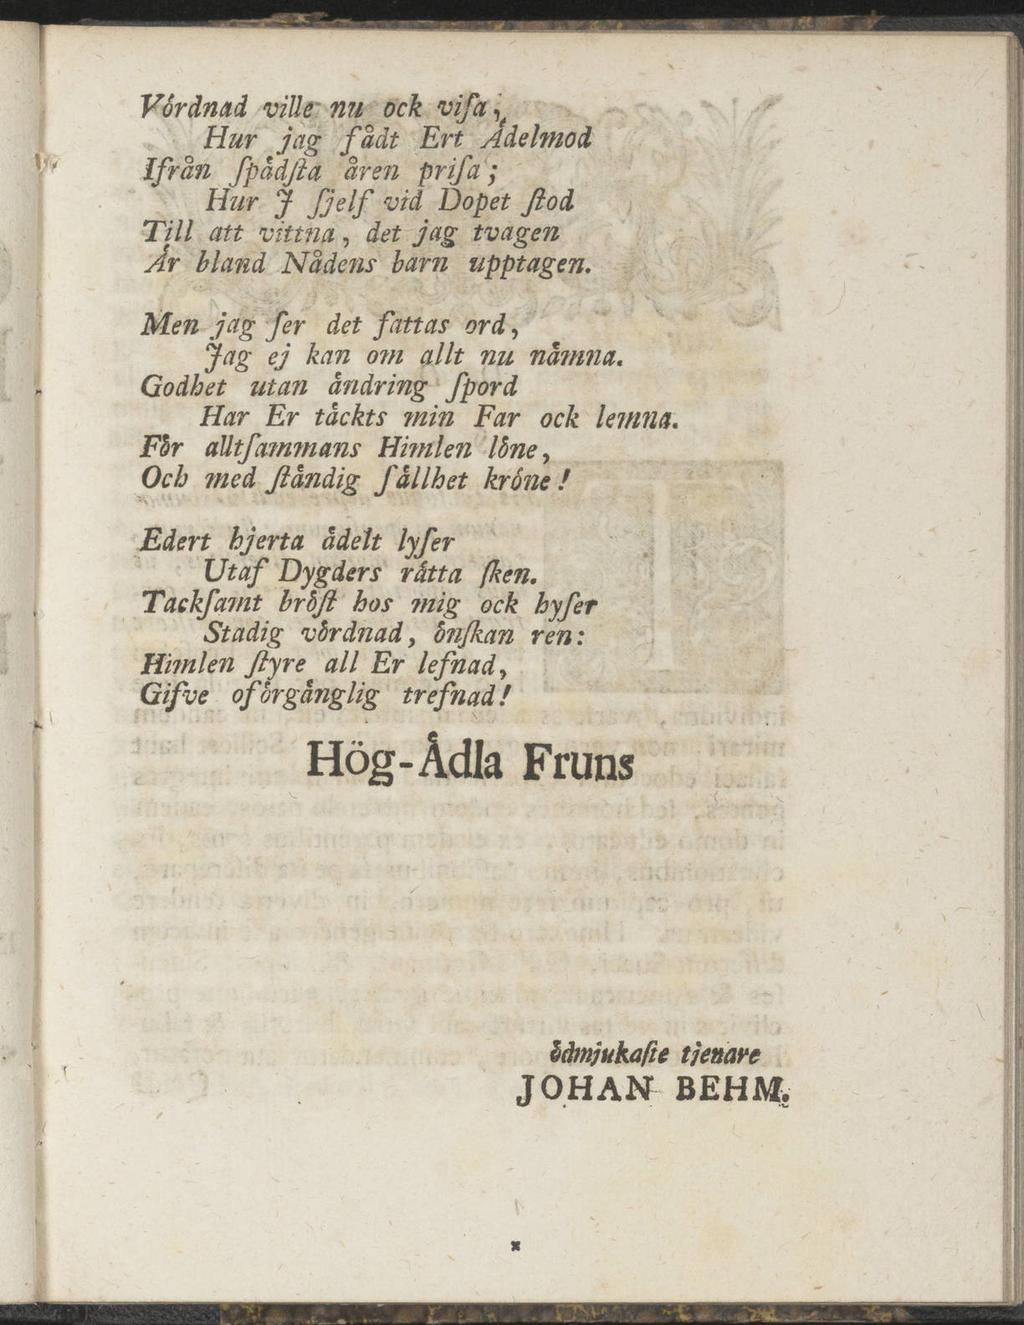 Vördnad ville nu ock viſa,
Hur jag fådt Ert Ädelmod
Ifrån ſpädſta åren priſa;
Hur J ſjelf vid Dopet ſtod
Till att vittna, det jag tvagen
Är bland Nådens barn upptagen.
Men jag ſer det fattas ord,
Jag ej kan om allt nu nämna.
Godhet utan ändring ſpord
Har Er täckts min Far ock lemna.
För alltſammans Himlen löne,
Och med ſtändig ſällhet kröne!
Edert hjerta ädelt lyſer
Utaf Dygders rätta ſken.
Tackſamt bröſt hos mig ock hyſer
Stadig vördnad, önſkan ren:
Himlen ſtyre all Er lefnad,
Gifve oförgänglig trefnad!
Hög-Ädla Fruns
ödmjukaſte tjenare
JOHAN BEHM.